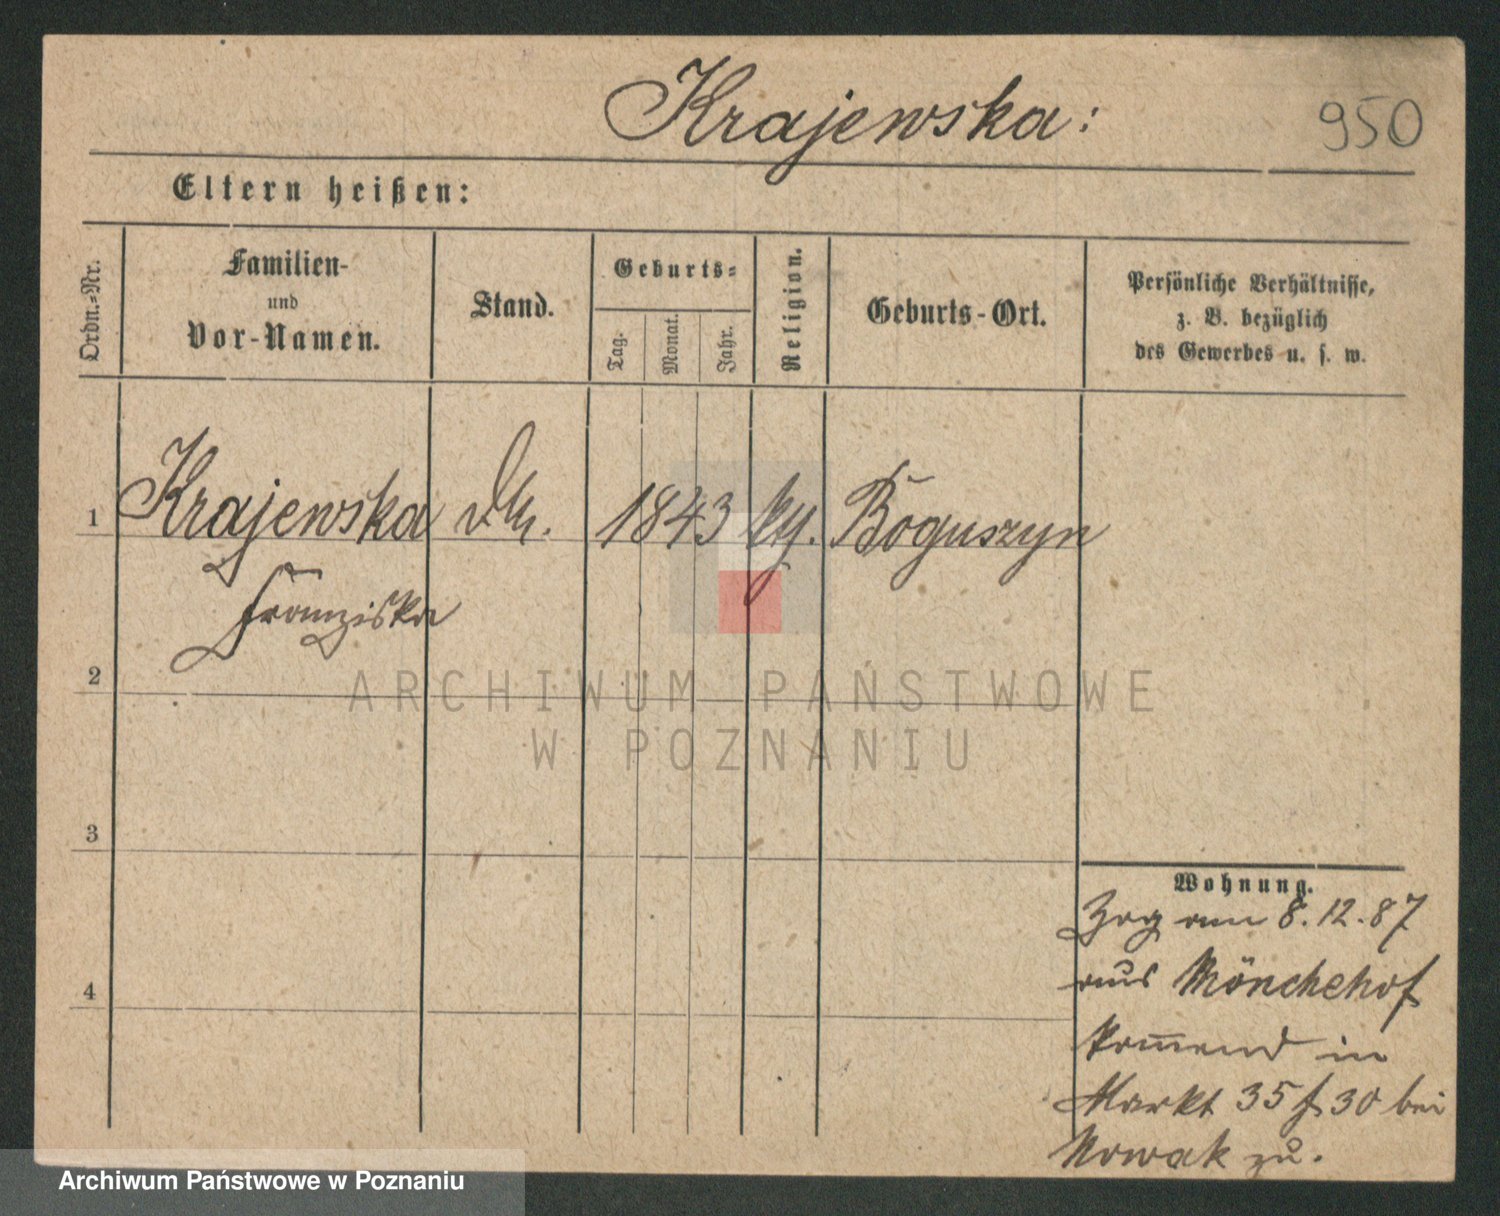 Krajewska:
950
Eltern heißen:
Ordn.-Nr.
Familien-
und
Vor-Namen.
Stand.
Geburts-
Tag.
Monat.
Jahr.
Religion.
Geburts-Ort.
Persönliche Verhältnisse,
z. B. bezüglich
des Gewerbes u. s. w.
1 Krajewska 1843 Boguszyn
Franziska
2
3
4
Wohnung.
Zog am 8.12.87
aus Mönchehof
kom̅end in
Markt 35 f 30 bei
Nowak zu.
ARCHIWUM PAŃSTWOWE
W POZNANIU
Archiwum Państwowe w Poznaniu